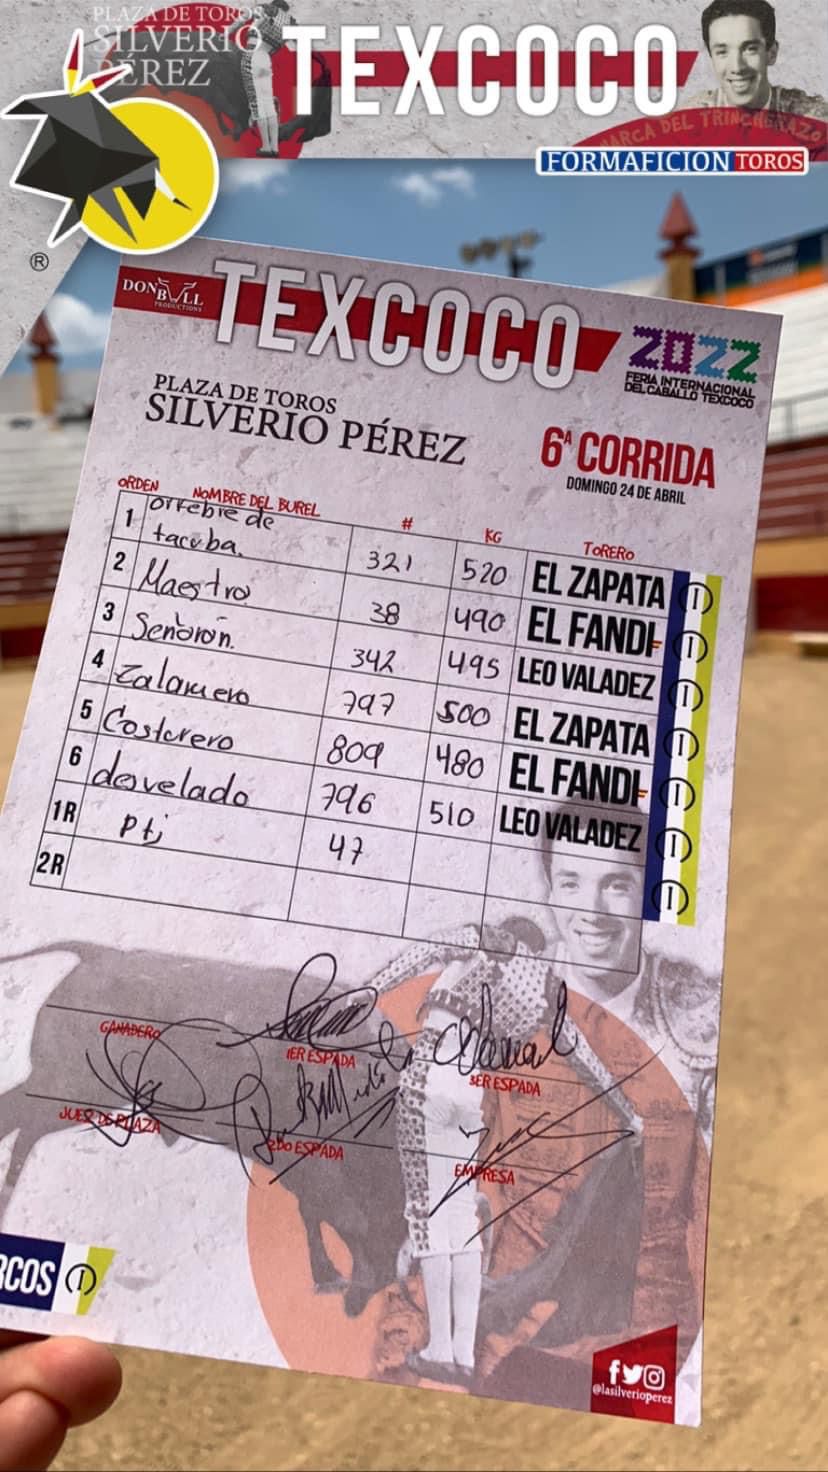 PLAZA DE TOROS
SILVERIO
PÉREZ
TEXCOCO
MARCA DEL TRINCHERAZO
FORMAFICION TOROS
®
DON BULL
PRODUCTIONS
TEXCOCO
2022
FERIA INTERNACIONAL
DEL CABALLO TEXCOCO
PLAZA DE TOROS
SILVERIO PÉREZ
6ª CORRIDA
DOMINGO 24 DE ABRIL
ORDEN NOMBRE DEL BUREL # KG TORERO
1 orfebre de tacuba. 321 520 EL ZAPATA
2 Maestro 38 490 EL FANDI
3 Señorón. 342 495 LEO VALADEZ
4 Zalamero 797 500 EL ZAPATA
5 Costurero 809 480 EL FANDI
6 dovelado 796 510 LEO VALADEZ
1R Ptj 47
2R
GANADERO
1ER ESPADA
3ER ESPADA
JUEZ DE PLAZA
2DO ESPADA
EMPRESA
RCOS
@lasilverioperez